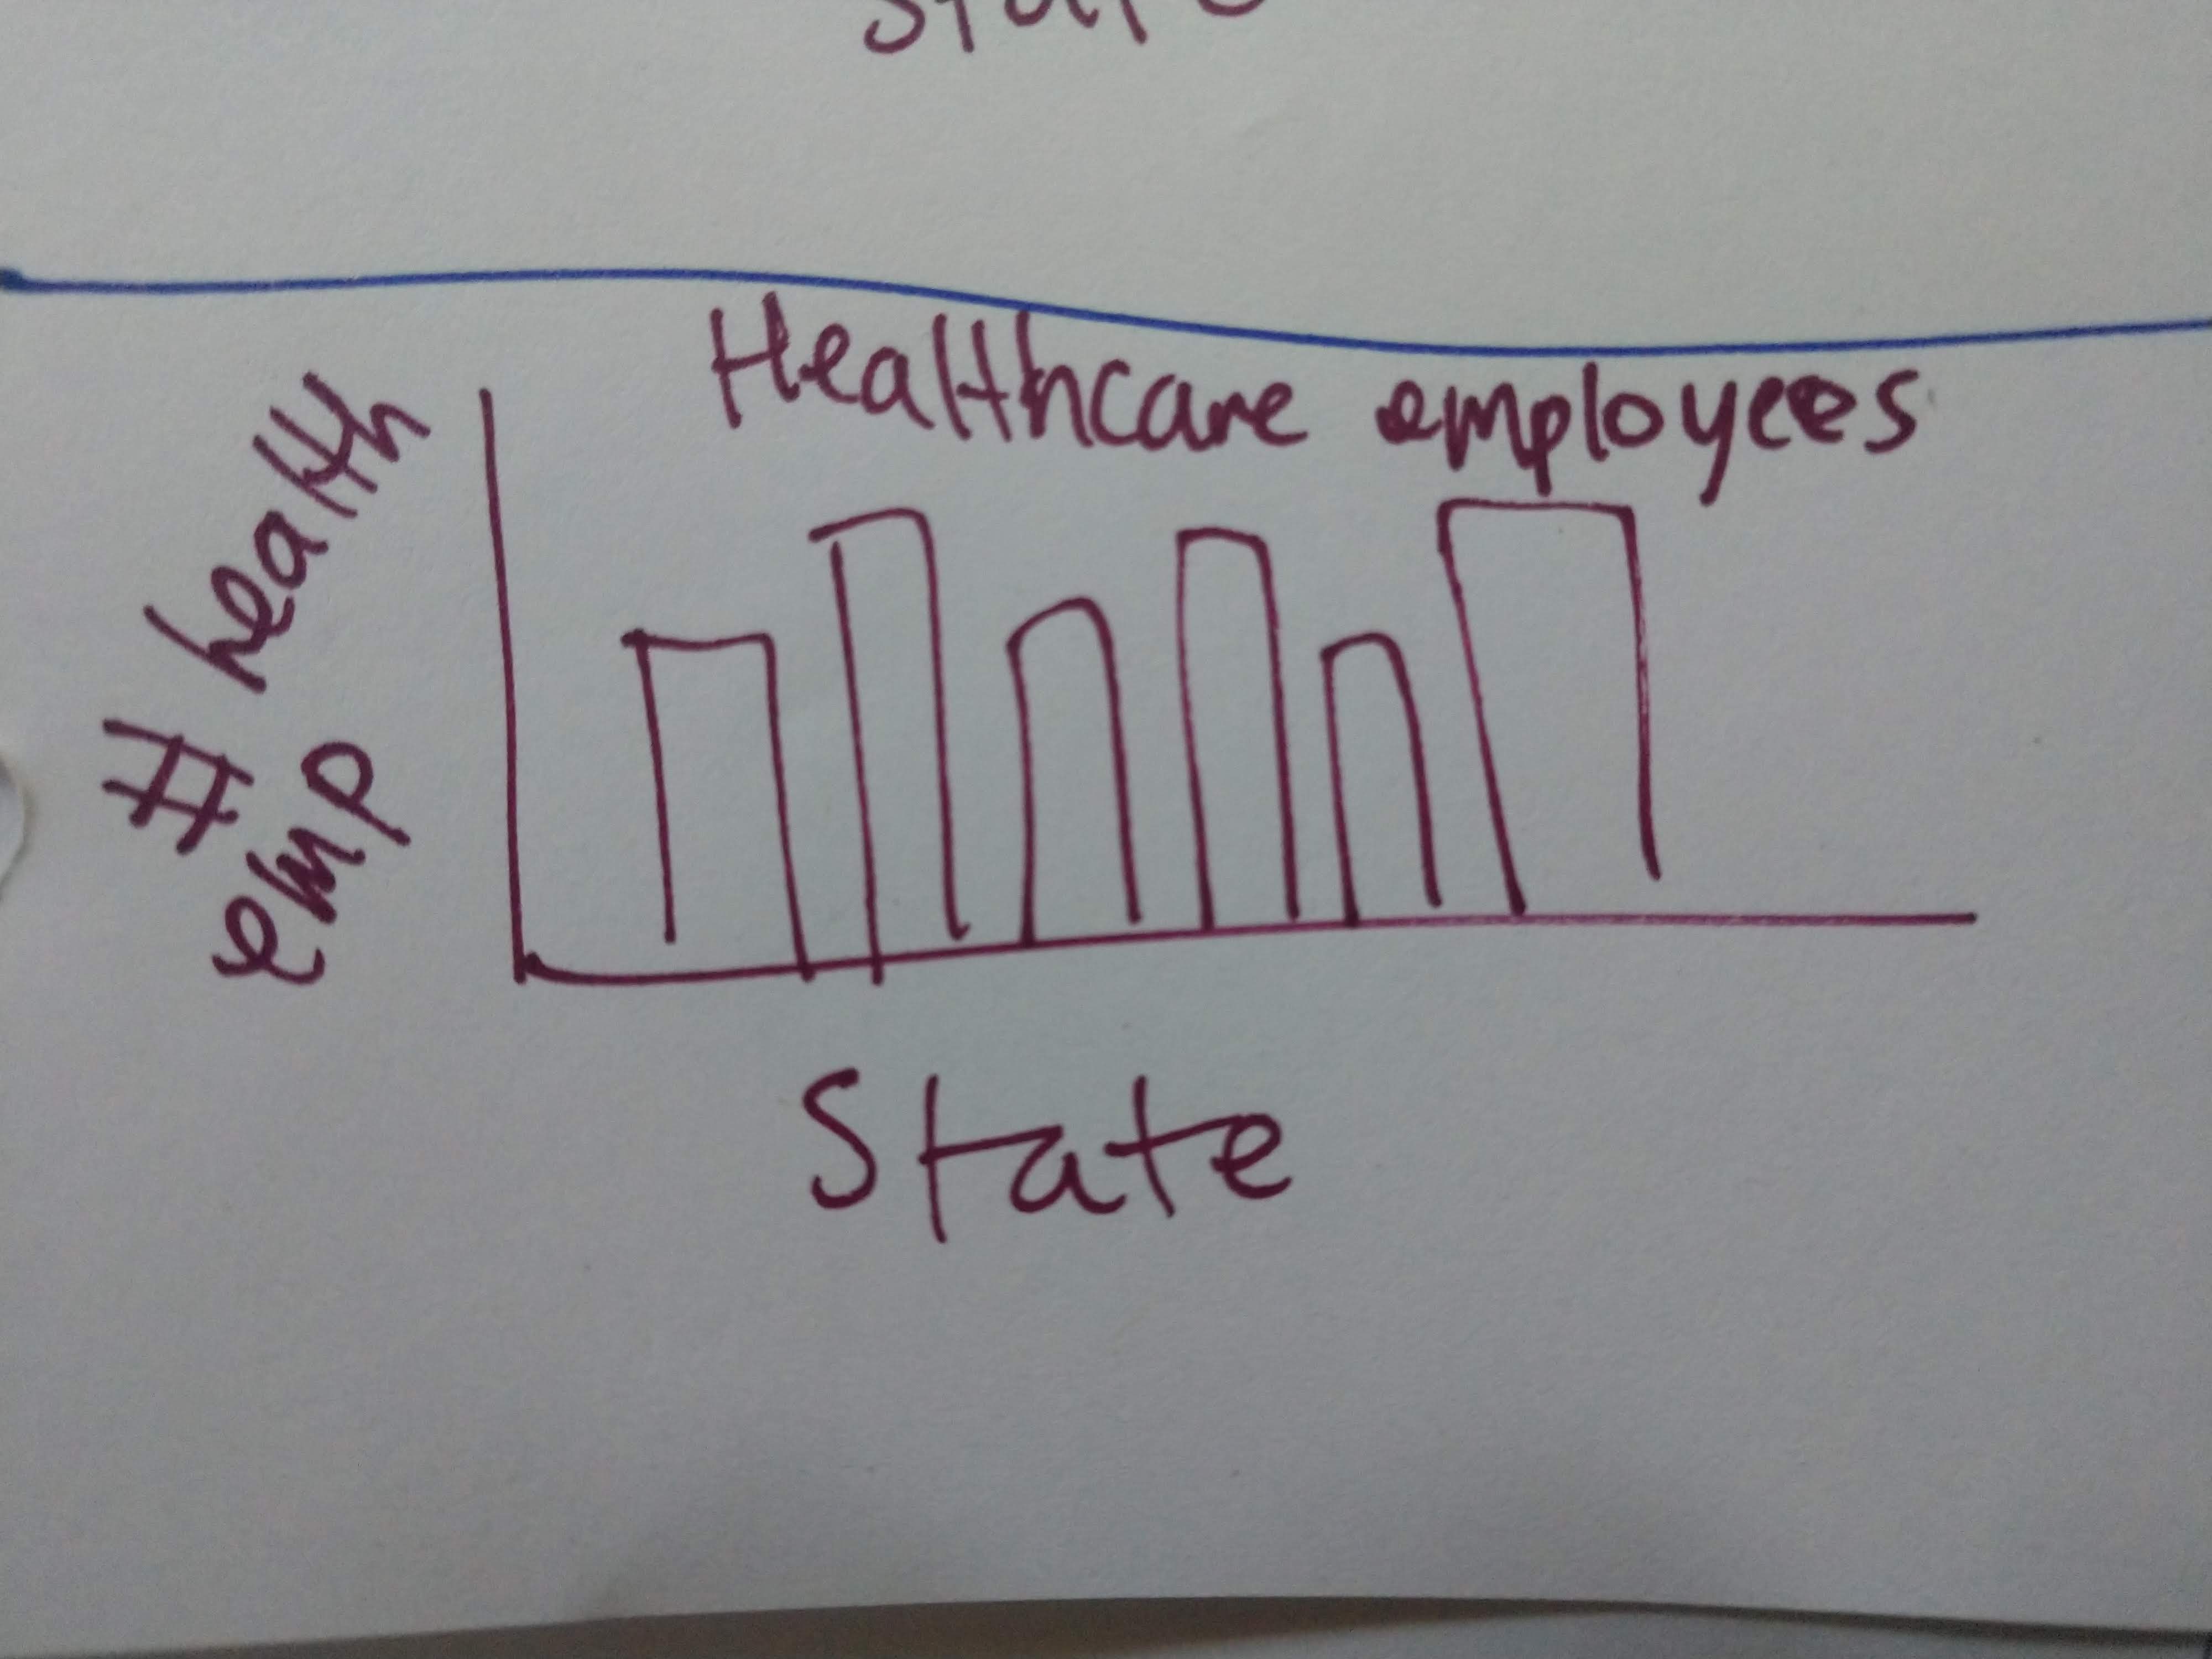 State
Healthcare employees
# health
emp
State